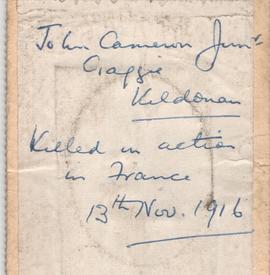 John Cameron Junr
Craggie
Kildonan
Killed in action
in France
13th Nov. 1916